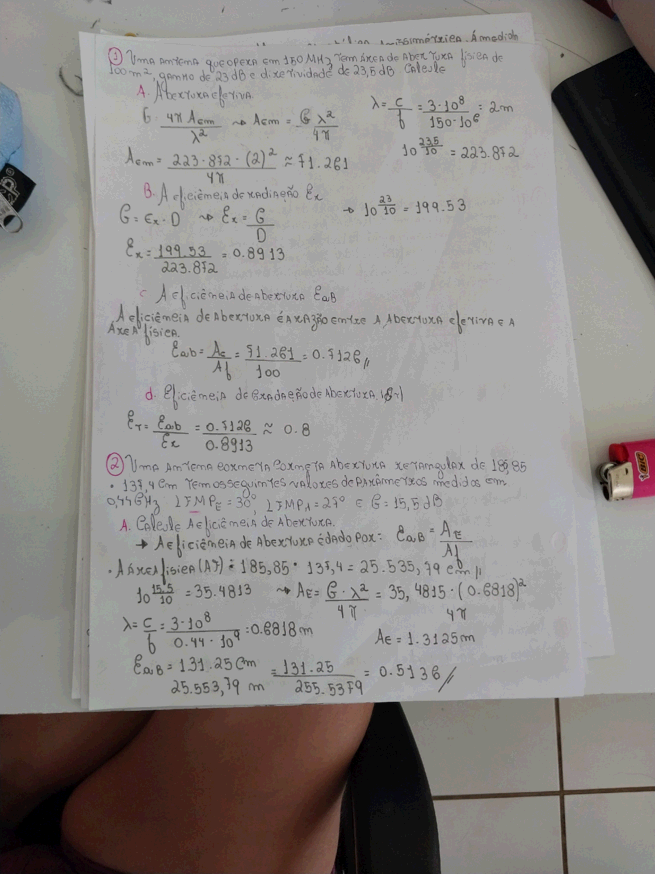 ① Uma antena que opera em 150 MHz tem área de abertura física de
100 m², ganho de 23 dB e diretividade de 23,5 dB calcule
A. Abertura efetiva
G = 4π Aem / λ² → Aem = G λ² / 4π
λ = c / f = 3·10⁸ / 150·10⁶ = 2m
Aem = 223.872 · (2)² / 4π ≈ 71.261
10^(23,5/10) = 223.872
B. A eficiência de radiação Er
G = Er · D → Er = G / D
→ 10^(23/10) = 199.53
Er = 199.53 / 223.872 = 0.8913
C A eficiência de abertura Eab
A eficiência de abertura é a razão entre a abertura efetiva e a
área física.
Eab = Ae / Af = 71.261 / 100 = 0.7126 //
d. Eficiência de gradação de abertura
Et = Eab / Er = 0.7126 / 0.8913 ≈ 0.8
② Uma antena corneta abertura retangular de 185,85
· 137,4 cm tem os seguintes valores de parâmetros medidos em
0,44 GHz LFMPE = 30° LFMPA = 27° e G = 15,5 dB
A. Calcule a eficiência de abertura.
→ A eficiência de abertura é dado por: Eab = AE / Af
· A área física (Af) = 185,85 · 137,4 = 25.535,79 cm //
10^(15,5/10) = 35.4813 → AE = G · λ² / 4π = 35,4815 · (0.6818)² / 4π
λ = c / f = 3·10⁸ / 0.44·10⁹ = 0.6818 m
AE = 1.3125m
EaB = 131.25 cm / 25.553,79 m = 131.25 / 255.5379 = 0.5136 //